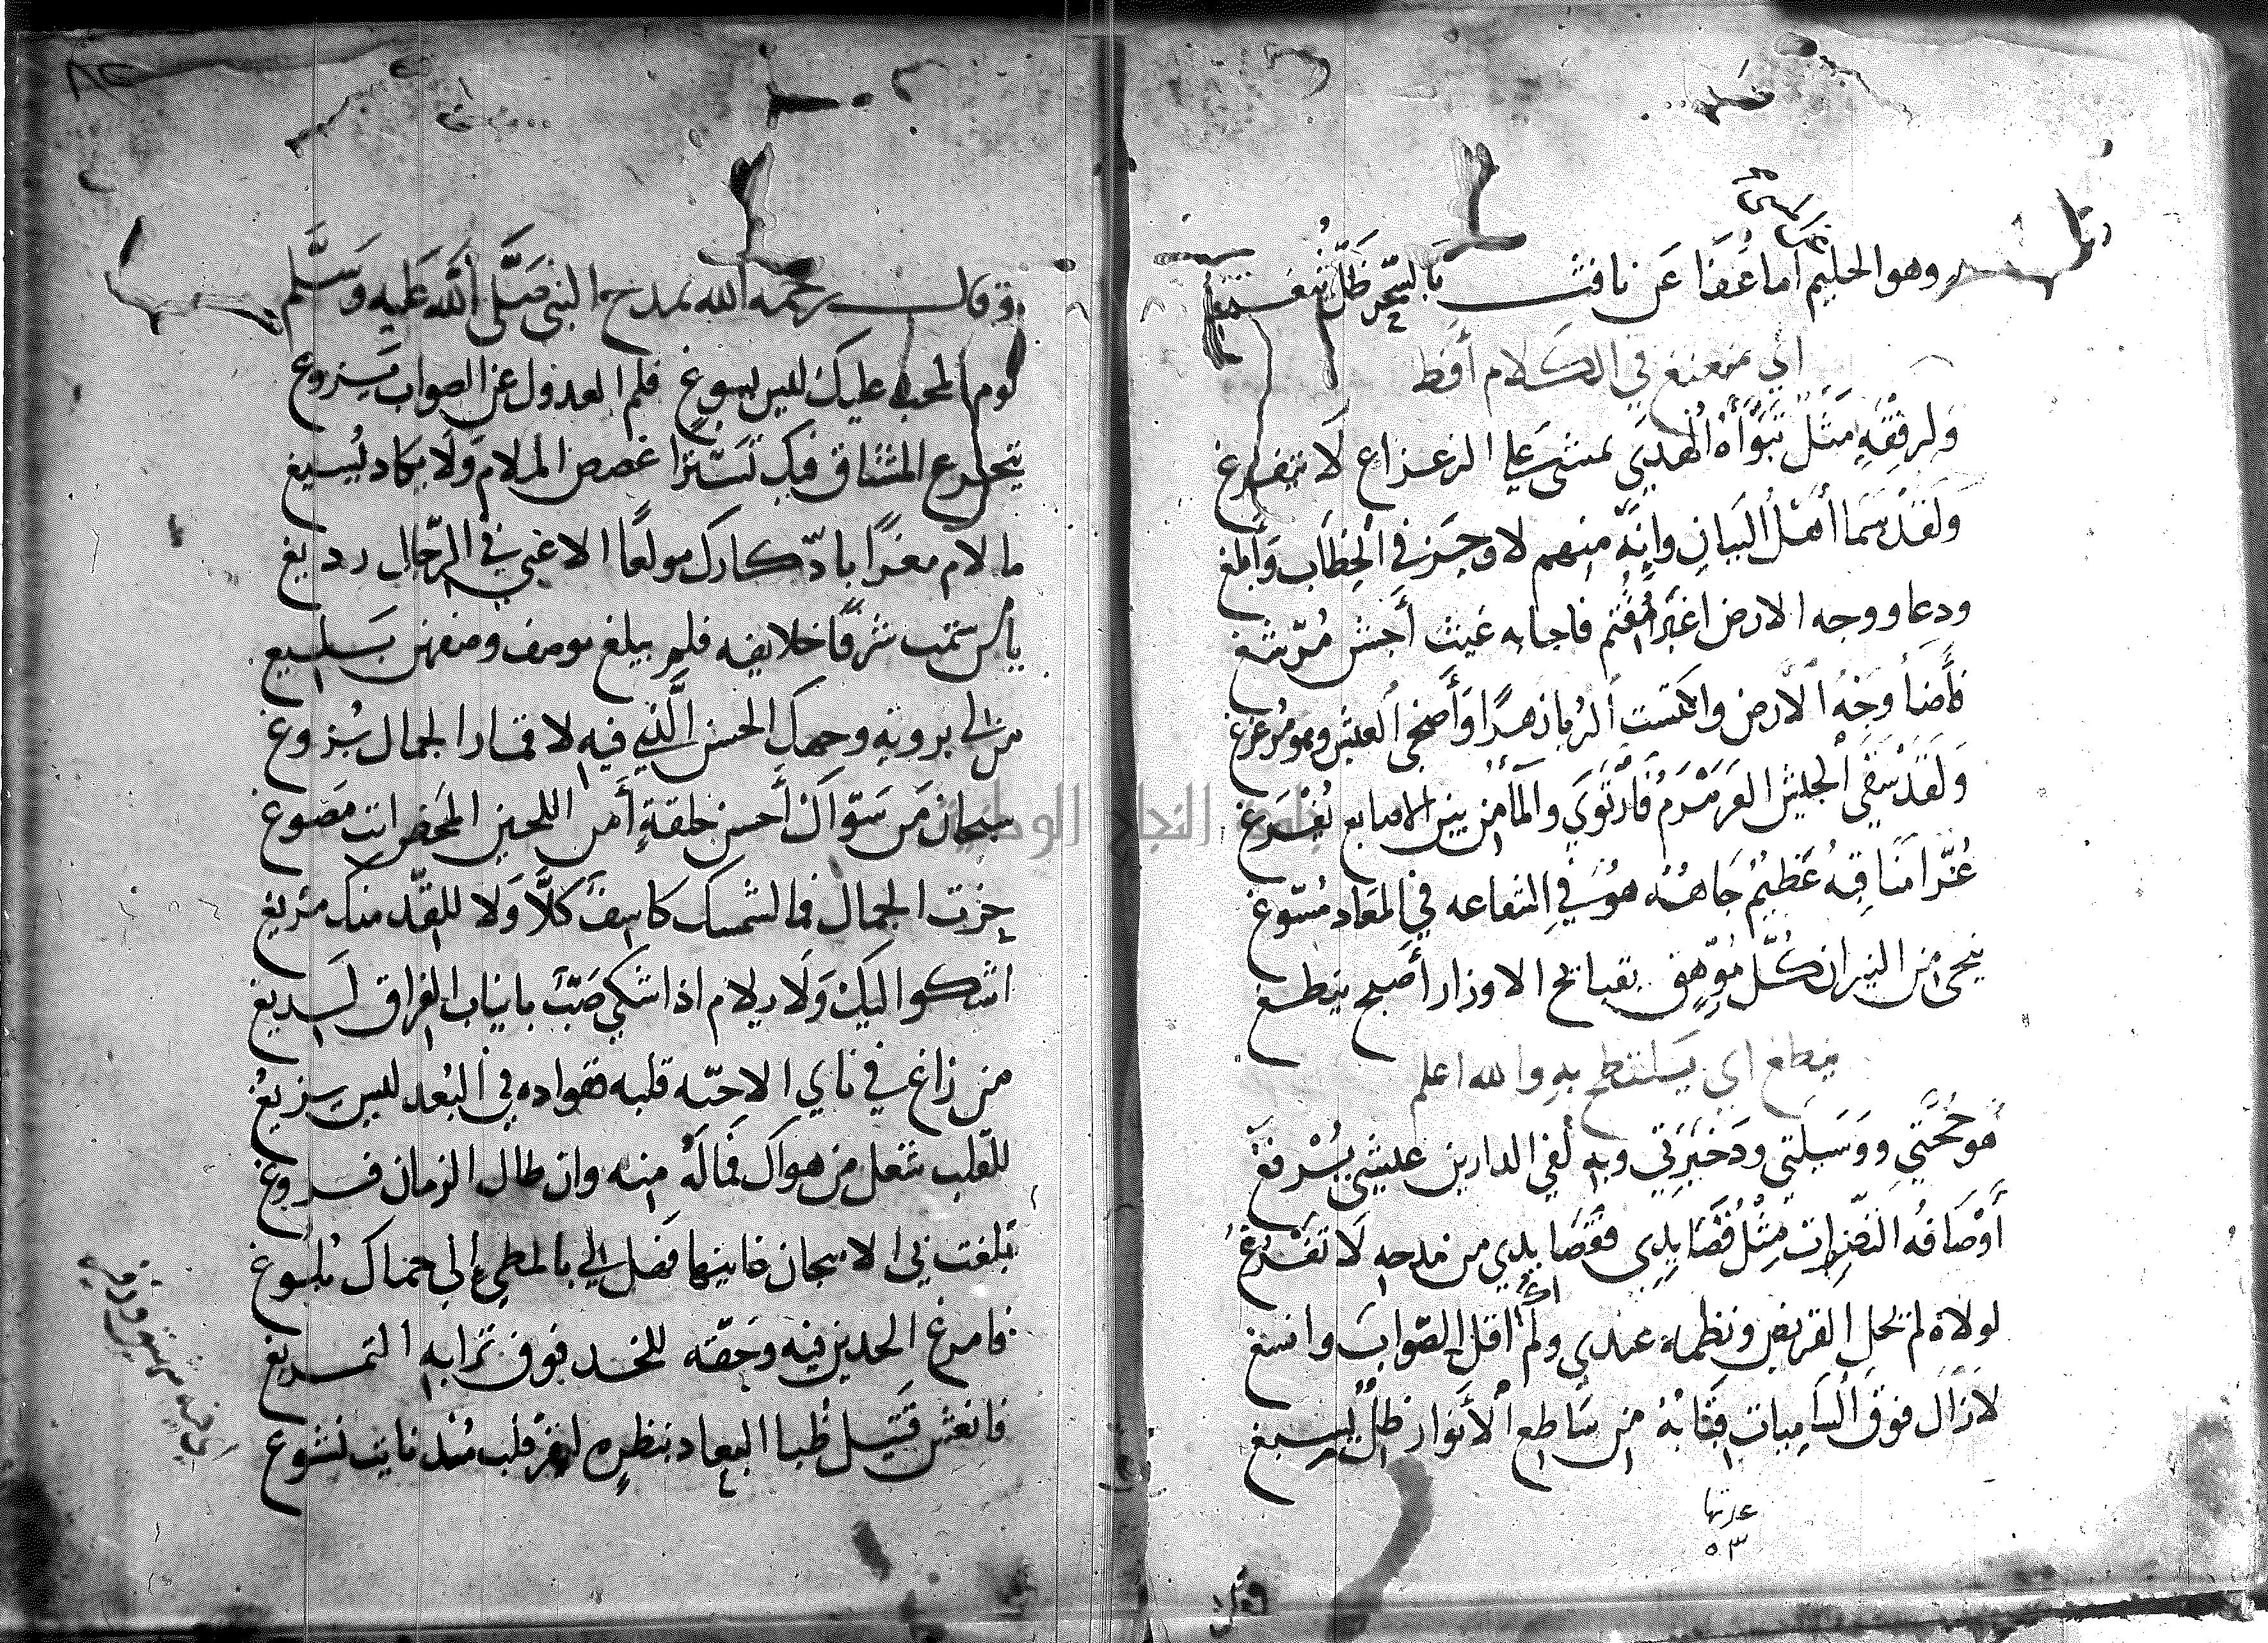 وهو الحليم أما عفا عن نافث بالسحر ظل
أي متعنغ في الكلام أفظ
ولرفقه مثل تبوأه الهدى يمشي على الزعزاع لا يتفدغ
ولقد سما أهل البيان وإنه منهم لاوجز في الخطاب وأبلغ
ودعا ووجه الارض اغبر مقتم فاجابه غيث أجش مرشغ
فأضا وجه الارض واكتست الربا زهرا وأضحى العيش وهو مرغرغ
ولقد سقى الجيش العرمرم فارتوى والماء من بين الاصابع يفرغ
غرا مناقبه عظيم جاهه هو في الشفاعه في المعاد مسوغ
ينجى من النيران كل موهق بقبائح الاوزار أصبح ينطغ
ينطغ اي يتلطخ به والله اعلم
هو حجتي ووسيلتي وذخيرتي وبه لفي الدارين عيشي يرفغ
أوصافه النضرات مثل قصايدي فقصايدي من مدحه لا تفرغ
لولاه لم يحل القريض ونظمه عندي ولم أك أقل الصواب وانسغ
لا زال فوق الساميات قبابه من ساطع الأنوار ظل يسبغ
عدتها
٥٣
وقال
وقال رحمه الله يمدح النبي صلى الله عليه وسلم
لوم المحب عليك ليس يسوغ فلم العذول عن الصواب يزوغ
يتجرع المشتاق فيك تسترا غصص الملام ولا يكاد يسيغ
ما لام مغرا بادكارك مولعا الا غبي في الرجال رديغ
يا من سمت شرفا خلايقه فلم يبلغ موصف وصفهن بليغ
من لي بروية وجهك الحسن الذي فيه لاقمار الجمال بزوغ
سبحان من سواك أحسن خلقة أمن اللجين المحض انت مصوغ
حزت الجمال فما لشمسك كاسف كلا ولا للقد منك مزيغ
اشكو اليك ولا يلام اذا اشتكى صب بانياب الفراق لديغ
من زاغ في ناي الاحبه قلبه ففواده في البعد ليس يزيغ
للقلب شغل من هواك فماله منه وان طال الزمان فروغ
بلغت بي الاشجان غايتها فهل لي بالمطي الى حماك بلوغ
فامرغ الخدين فيه وحقه للخد فوق ترابه التمريغ
فانعش قتيل ظبا البعاد بنظره